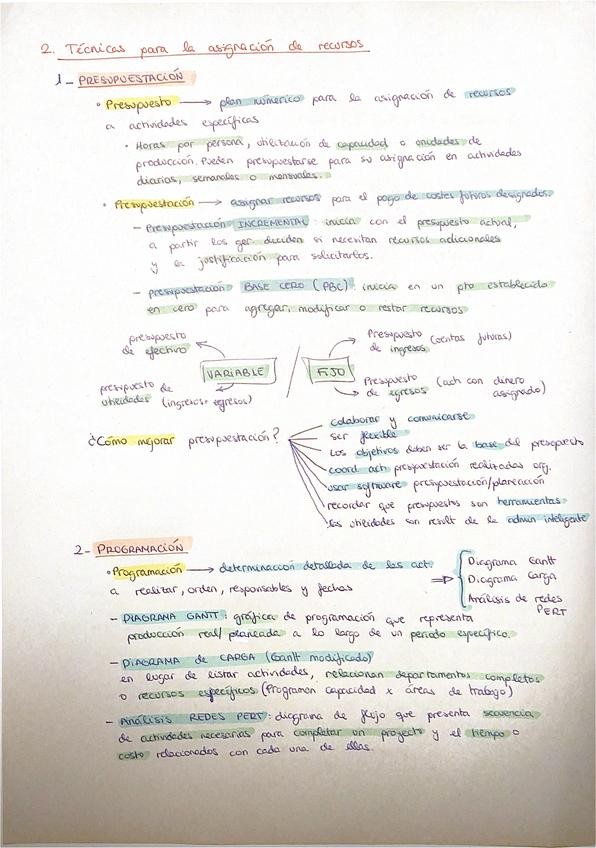 2. Técnicas para la asignación de recursos
1_ PRESUPUESTACIÓN
• Presupuesto → plan númerico para la asignación de recursos
a actividades específicas
• Horas por persona, utilización de capacidad o unidades de
producción. Pueden presupuestarse para su asignación en actividades
diarias, semanales o mensuales.
• Presupuestación → asignar recursos para el pago de costes futuros designados.
– Presupuestación INCREMENTAL: inicia con el presupuesto actual,
a partir los ger. deciden si necesitan recursos adicionales
y la justificación para solicitarlos.
– presupuestación BASE CERO (PBC): inicia en un pto establecido
en cero para agregar, modificar o restar recursos
presupuesto
de efectivo
VARIABLE
presupuesto de
utilidades (ingresos+egresos)
/
FIJO
Presupuesto (ventas futuras)
de ingresos
Presupuesto (ach con dinero
de egresos asignado)
¿Cómo mejorar presupuestación?
colaborar y comunicarse
ser flexible
Los objetivos deben ser la base del presupuesto
coord ach presupuestación realizadas org.
usar software presupuestación/planeación
recordar que presupuestos son herramientas
las utilidades son result de la admin inteligente
2- PROGRAMACIÓN
• Programación → determinación detallada de las act.
a realizar, orden, responsables y fechas
⇒ { Diagrama Gantt
Diagrama Carga
Análisis de redes
PERT
– DIAGRAMA GANTT: gráfica de programación que representa
producción real/planeada a lo largo de un periodo específico.
– DIAGRAMA de CARGA (Gantt modificado)
en lugar de listar actividades, relacionan departamentos completos
o recursos específicos (Programan capacidad x áreas de trabajo)
– Análisis REDES PERT: diagrama de flujo que presenta secuencia
de actividades necesarias para completar un proyecto y el tiempo o
costo relacionados con cada una de ellas.